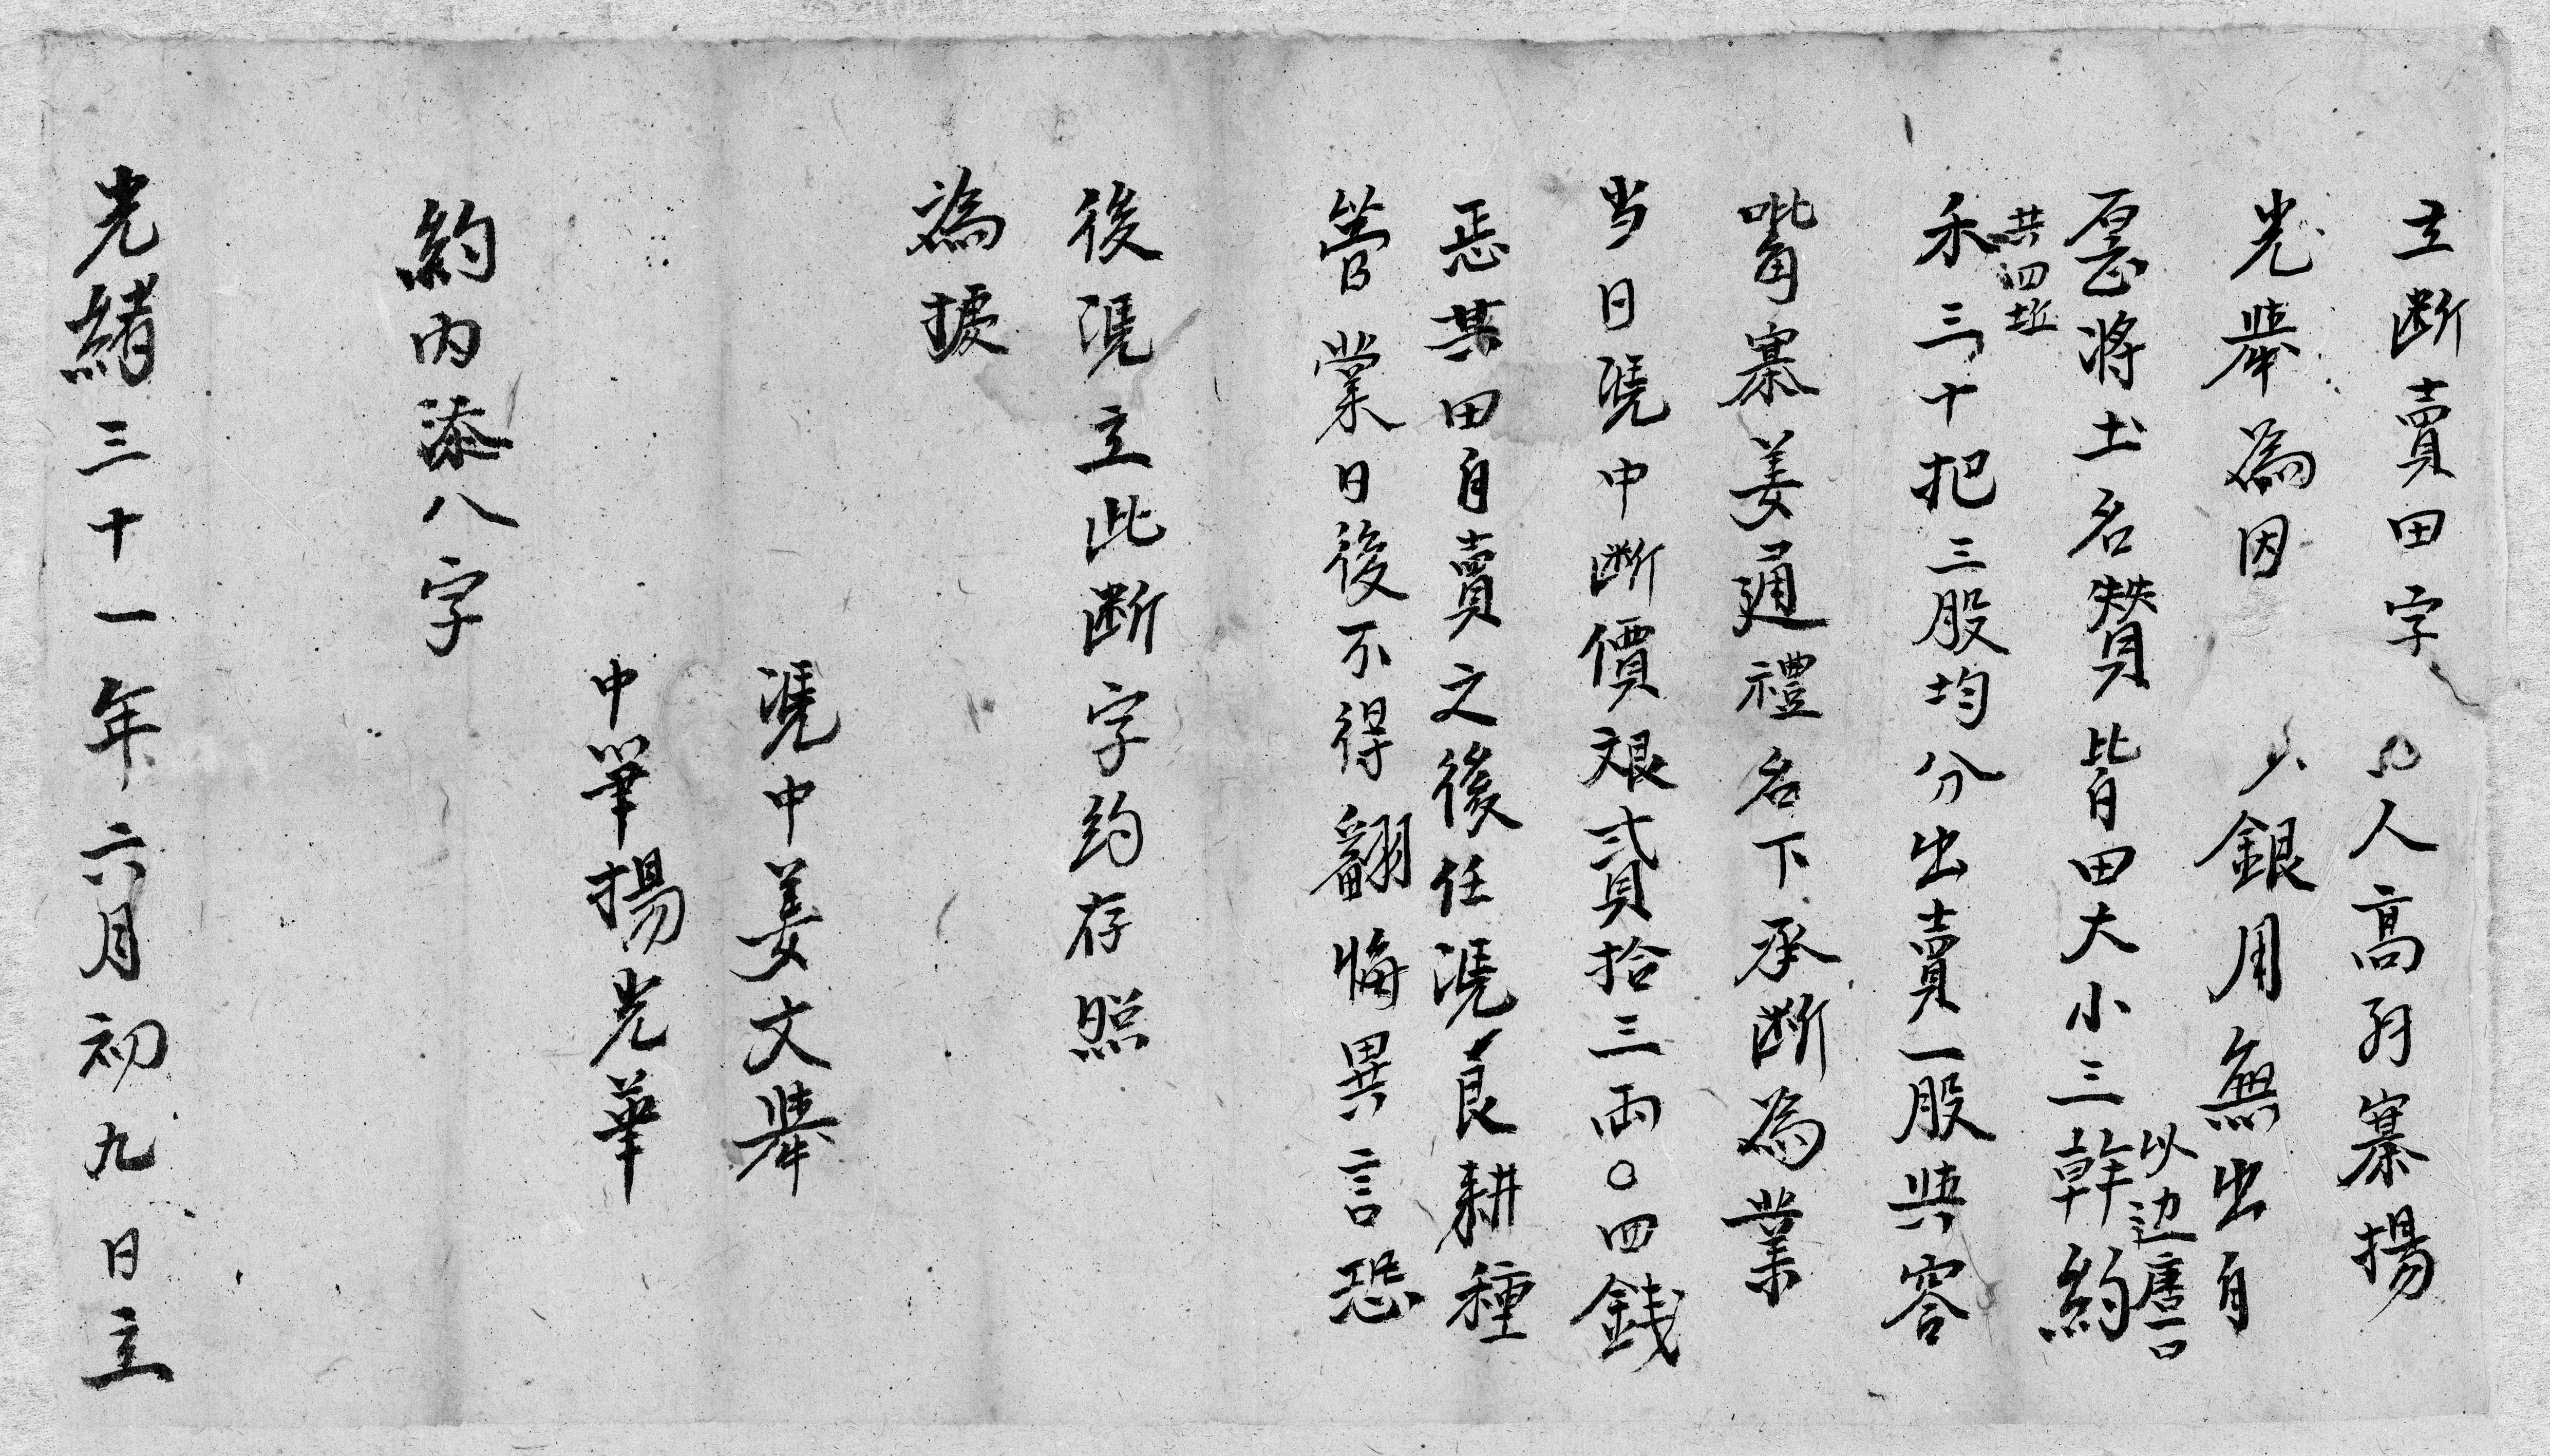 立断賣田字人高羽寨揚
光舉為因少銀用無出自
愿將土名贊皆田大小三幹約
以边唐一口
共四坵
禾三十把三股均分出賣一股與容
嘴寨姜通禮名下承断為業
当日凴中断價艮貳拾三両〇四銭
恁其田自賣之後任凴良耕種
管業日後不得翻悔異言恐
後凴立此断字約存照
為據
凴中姜文舉
中筆揚光華
約内添八字
光緒三十一年六月初九日立